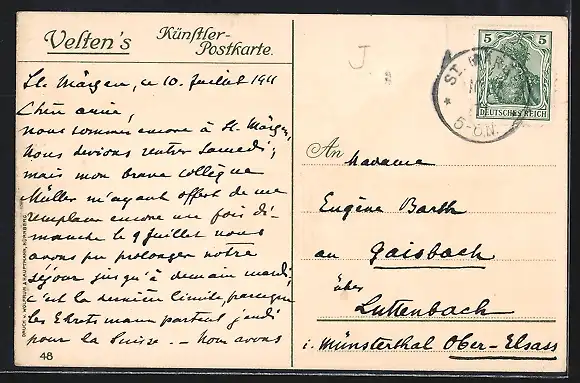 Velten's
Künstler-
Postkarte.
St. Märgen, ce 10. Juillet 1911
Chère amie,
nous sommes encore à St. Märgen,
Nous devions rentrer Samedi;
mais mon brave collègue
Müller m'ayant offert de me
remplacer encore une fois di-
manche le 9 Juillet nous
avons pu prolonger notre
séjour jusqu'à demain mardi;
c'est la dernière limite, parceque
les Ehretsmann partent jeudi
pour la Suisse. — Nous avons
48
DRUCK V. WOLFRUM & HAUPTMANN, NÜRNBERG
5 5
DEUTSCHES REICH
ST. MÄRGEN
5-6 N.
J.
An Madame
Eugène Barth
au Gaisbach
über
Luttenbach
i. Münsterthal Ober-Elsass